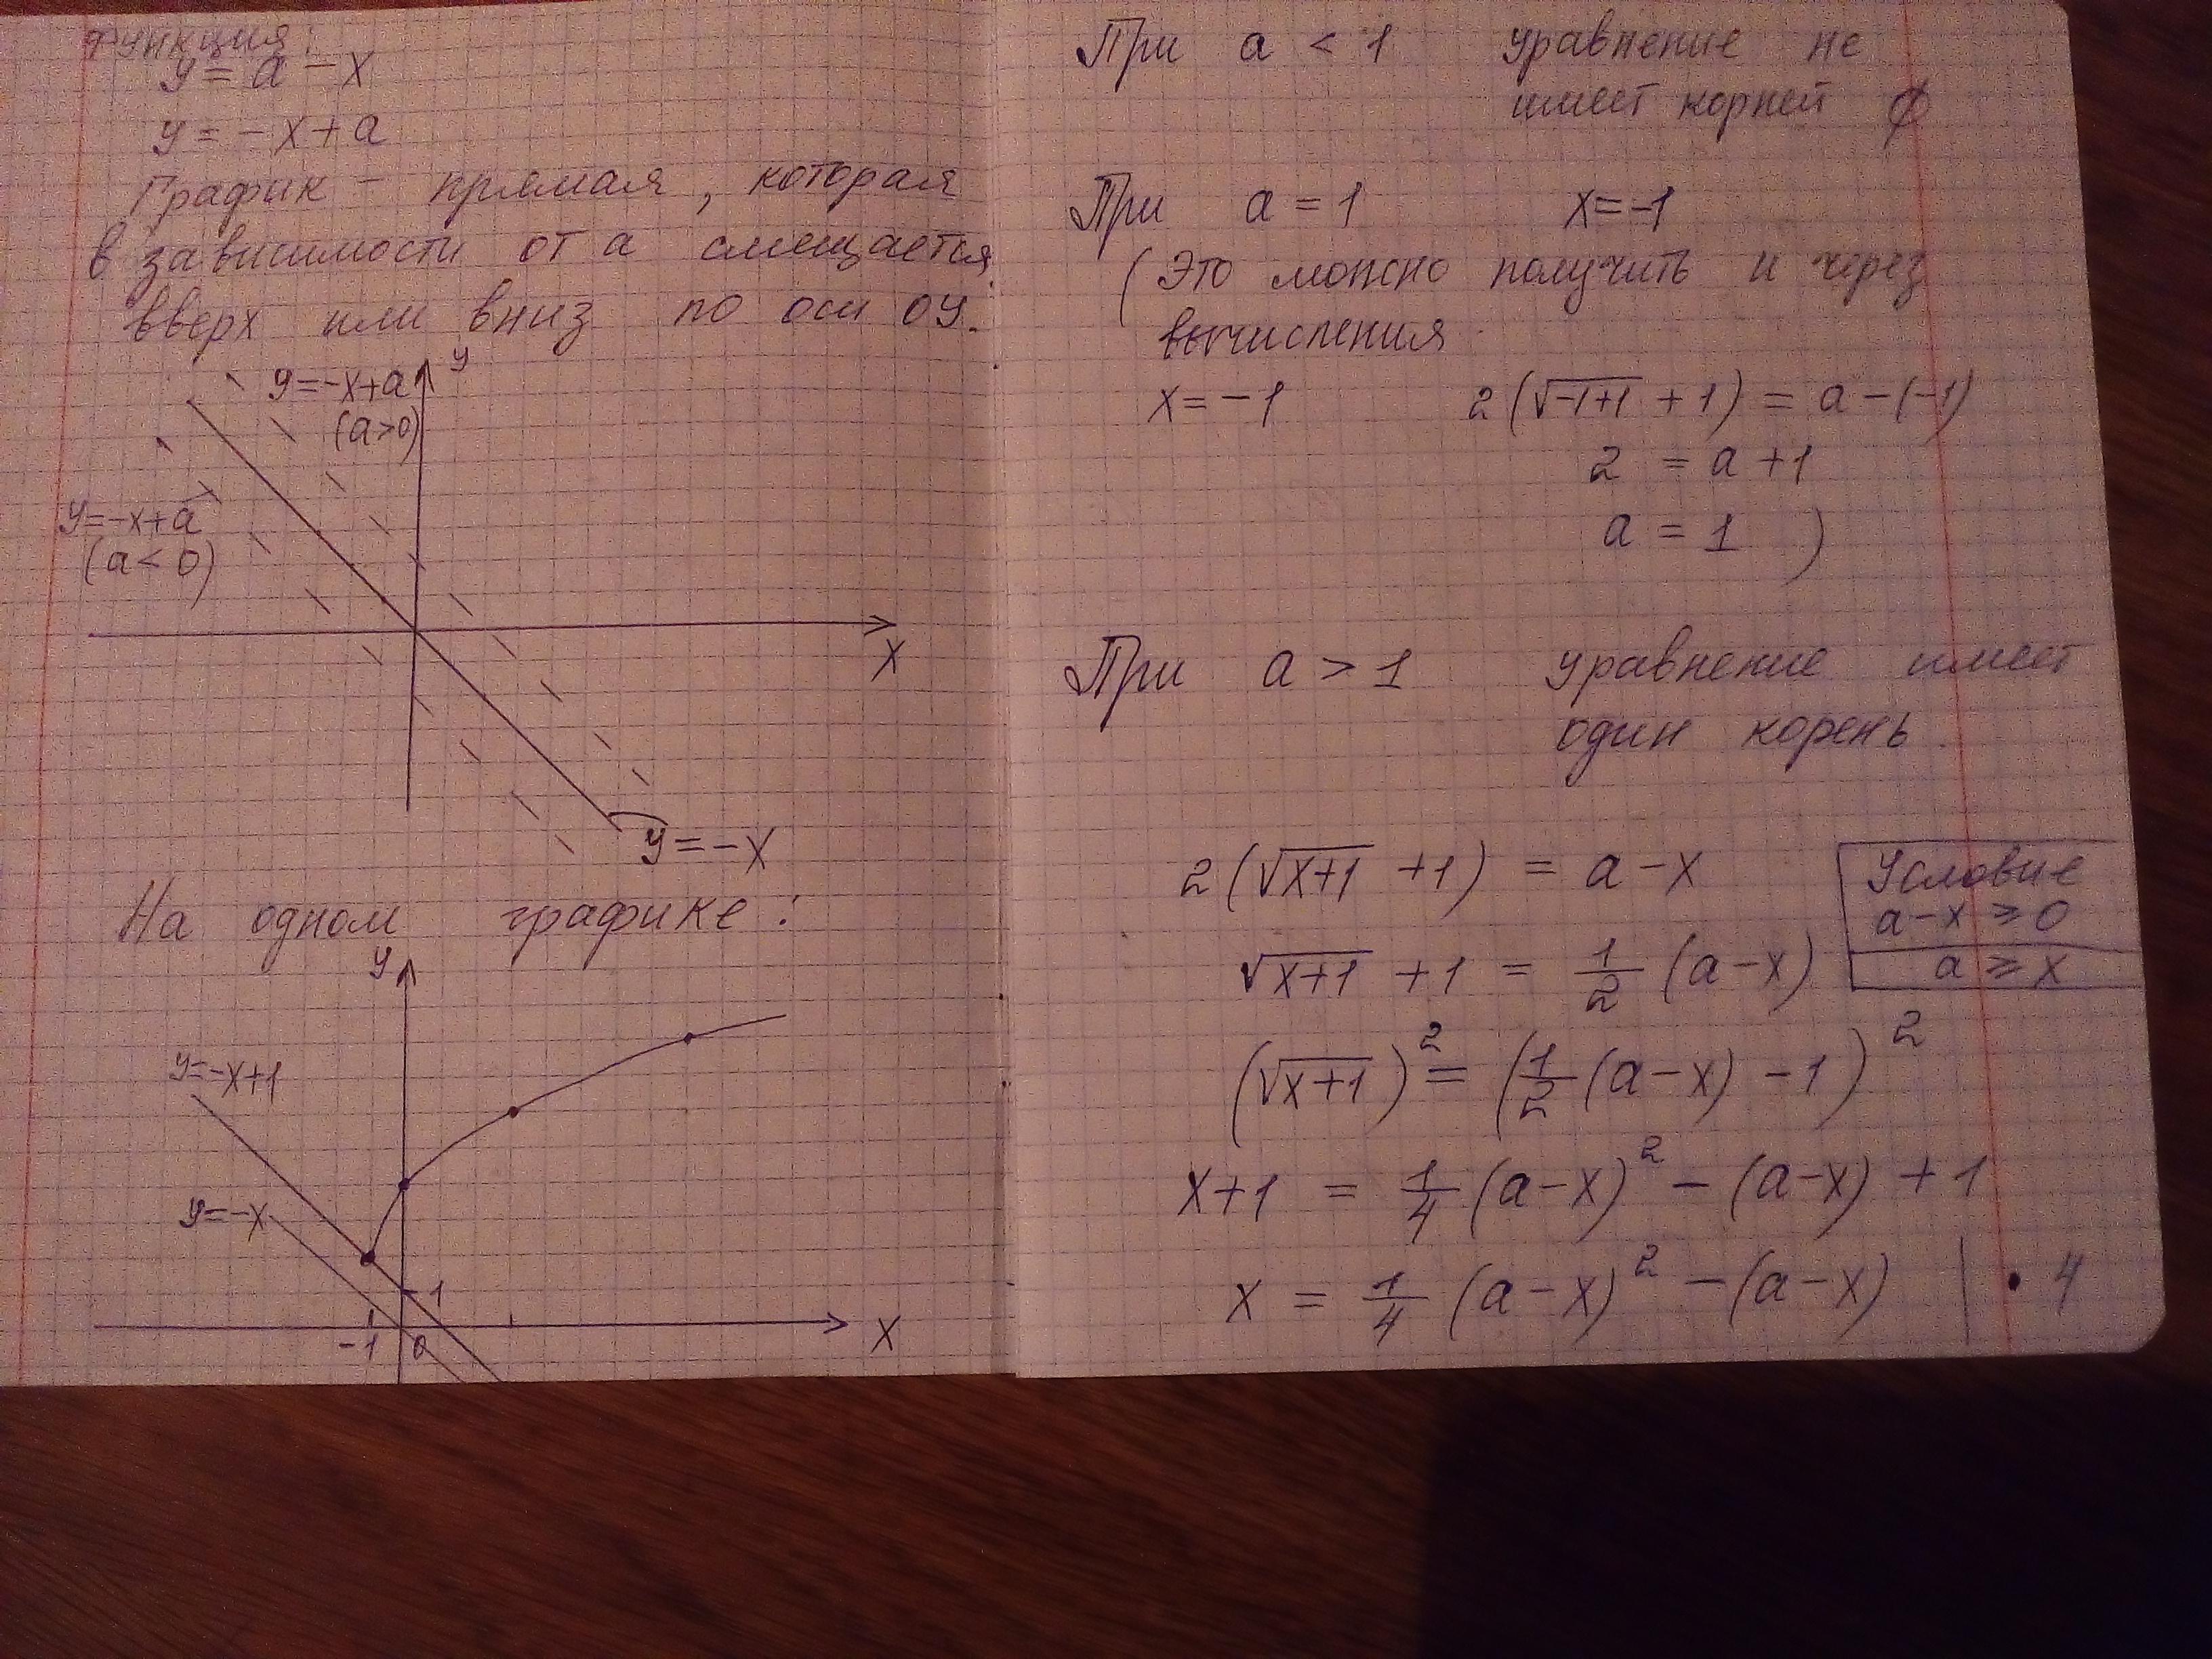 Функция:
y = a - x
y = - x + a
График - прямая, которая
в зависимости от a смещается
вверх или вниз по оси OY.
y
y=-x+a
(a>0)
y=-x+a
(a<0)
x
y=-x
На одном графике:
y
y=-x+1
y=-x
1
-1
0
x
При a < 1 уравнение не
имеет корней ∅
При a = 1 x=-1
(Это можно получить и через
вычисления
x=-1 2(√-1+1 + 1) = a-(-1)
2 = a+1
a = 1 )
При a > 1 уравнение имеет
один корень.
2(√x+1 +1) = a-x
Условие
a-x ≥ 0
a ≥ x
√x+1 + 1 = 1/2 (a-x)
(√x+1)² = (1/2 (a-x) - 1)²
x+1 = 1/4 (a-x)² - (a-x) + 1
x = 1/4 (a-x)² - (a-x) | • 4